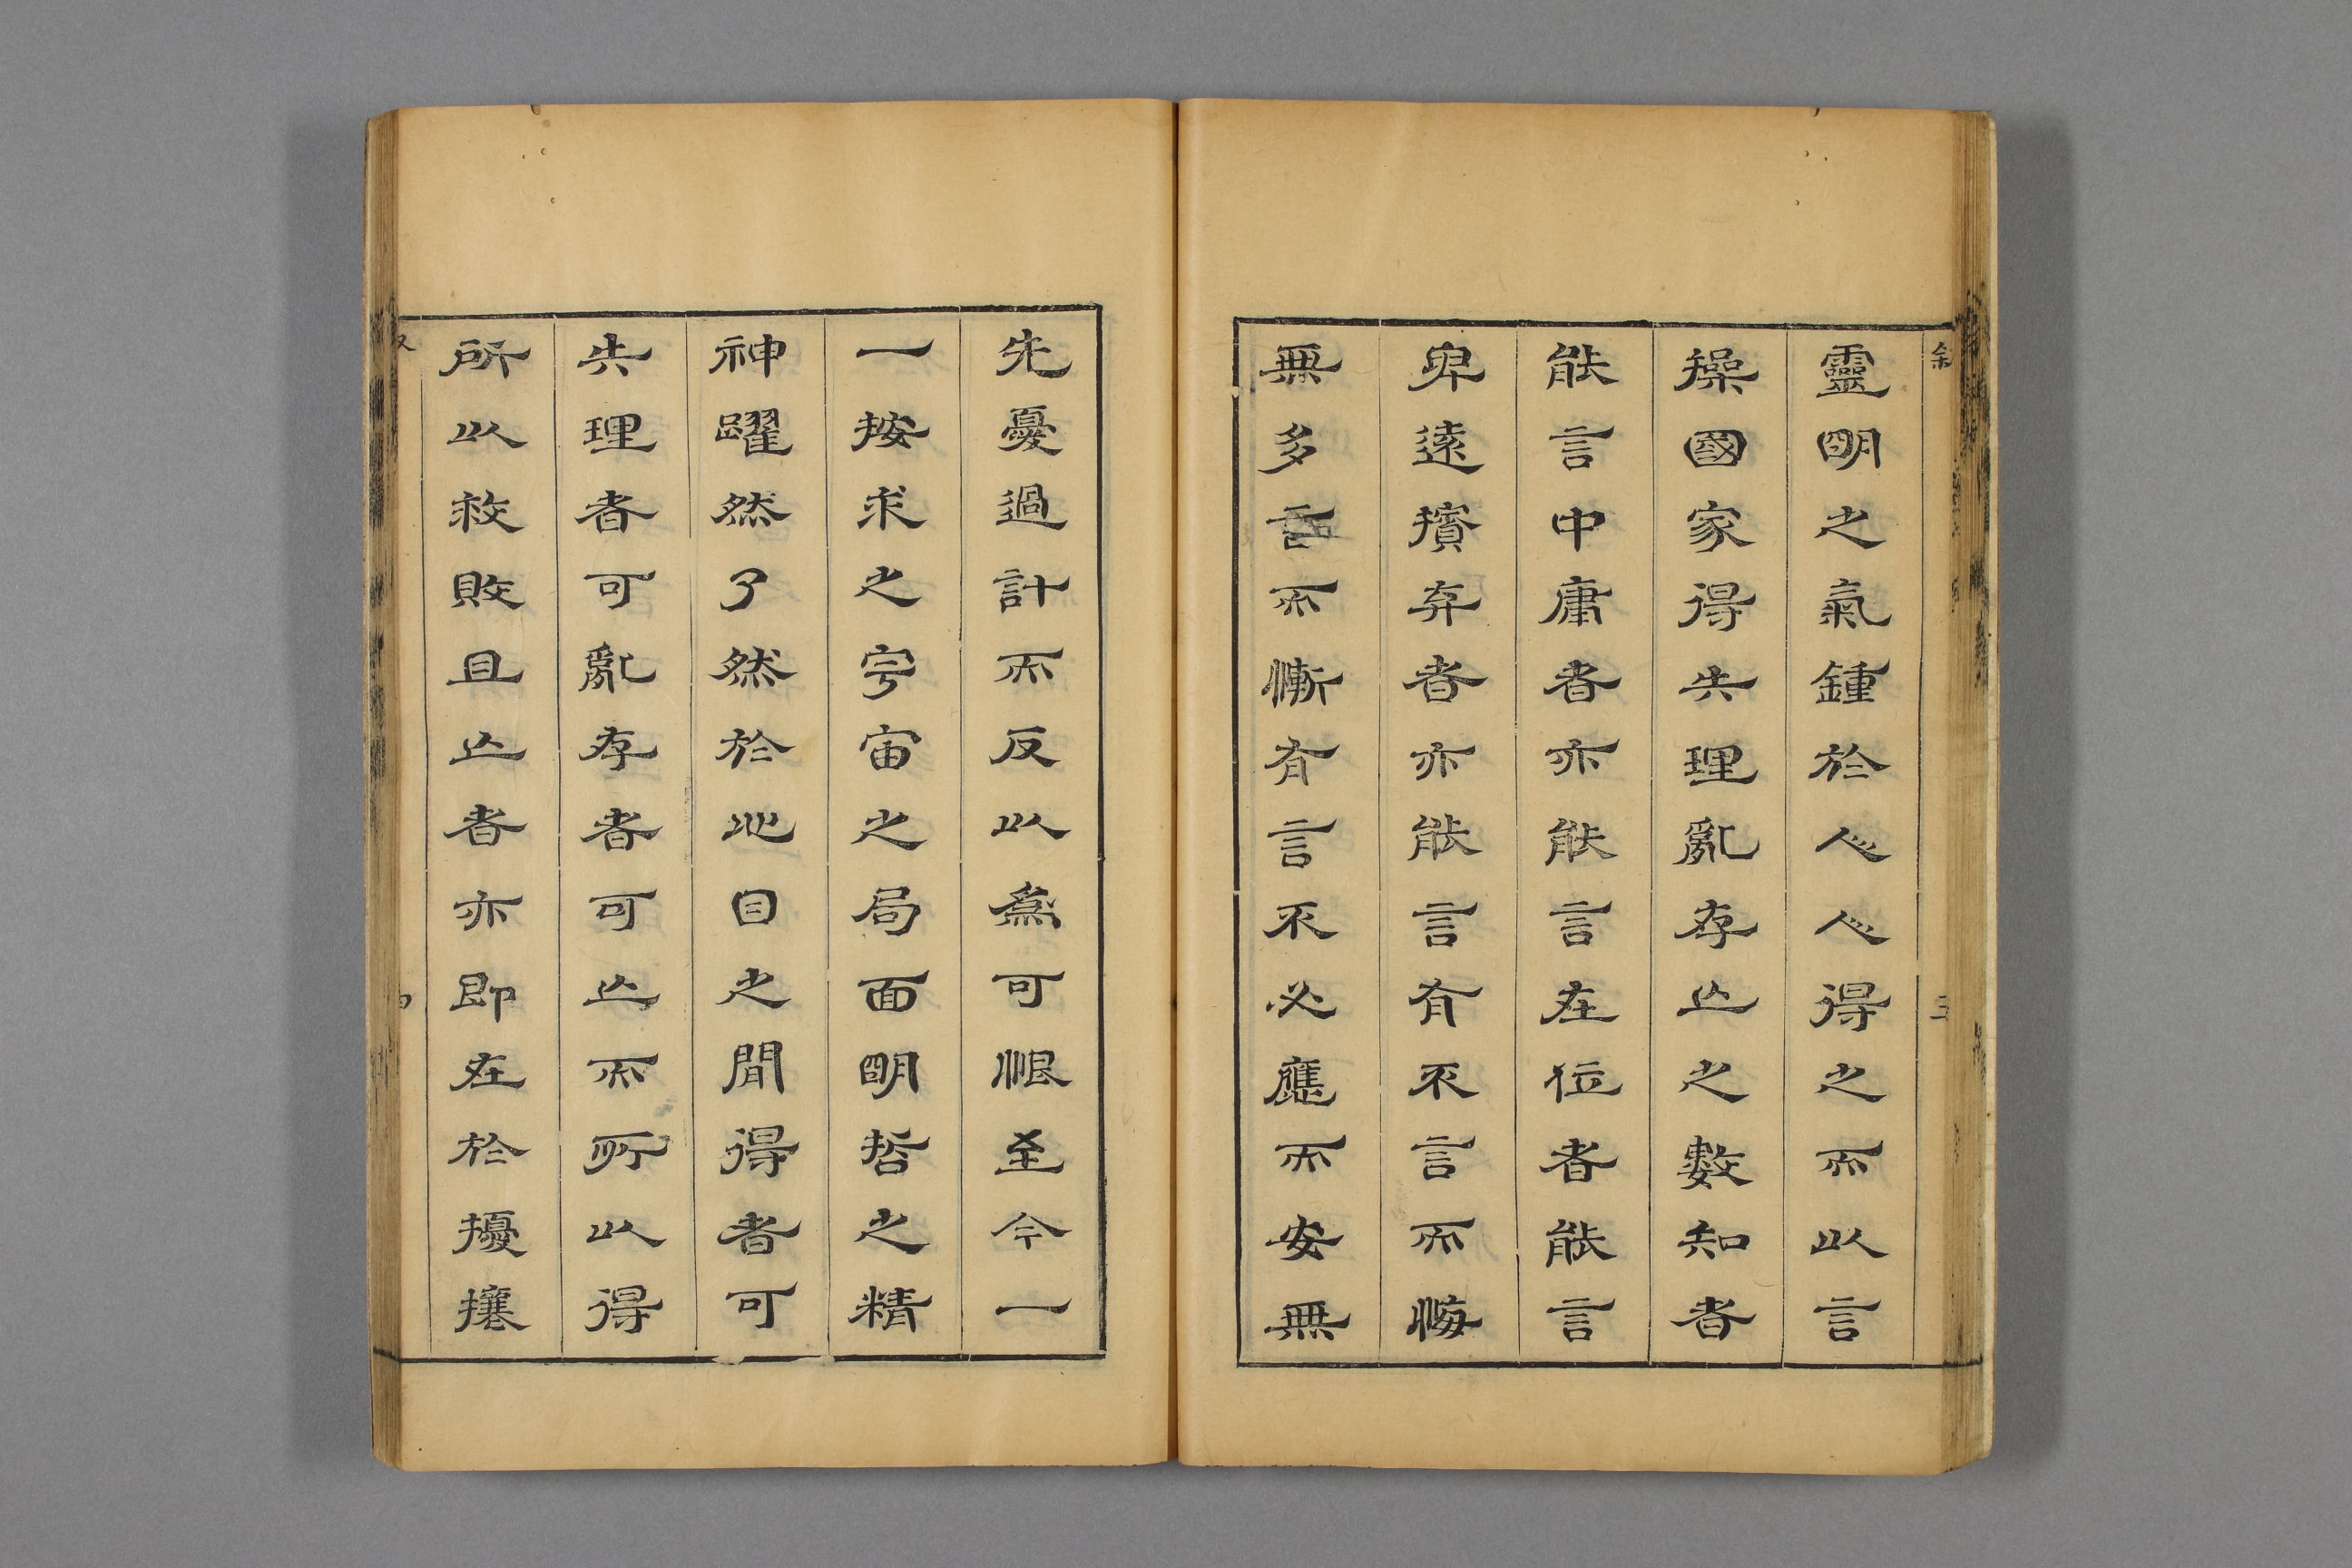 靈明之氣鍾於人人得之而以言
操國家得失理亂存亡之數知者
能言中庸者亦能言在位者能言
卑遠擯弃者亦能言有不言而悔
無多言而慚有言不必應而安無
先憂過計而反以為可恨至今一
一按求之宇宙之局面明哲之精
神躍然了然於心目之間得者可
失理者可亂存者可亡而所以得
所以救敗且亡者亦即在於擾攘
敘
三